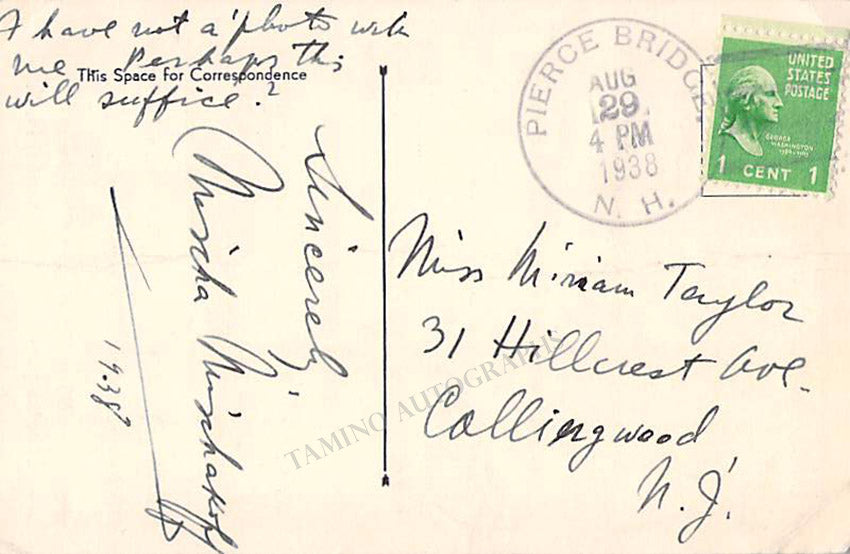 I have not a photo with
me Perhaps this
This Space for Correspondence
will suffice?
Sincerely,
Mischa Mischakoff
1938
PIERCE BRIDGE,
AUG
29
4 PM
1938
N. H.
UNITED
STATES
POSTAGE
GEORGE
WASHINGTON
1 CENT 1
Miss Miriam Taylor
31 Hillcrest Ave.
Collingwood
N.J.
TAMINO AUTOGRAPHS